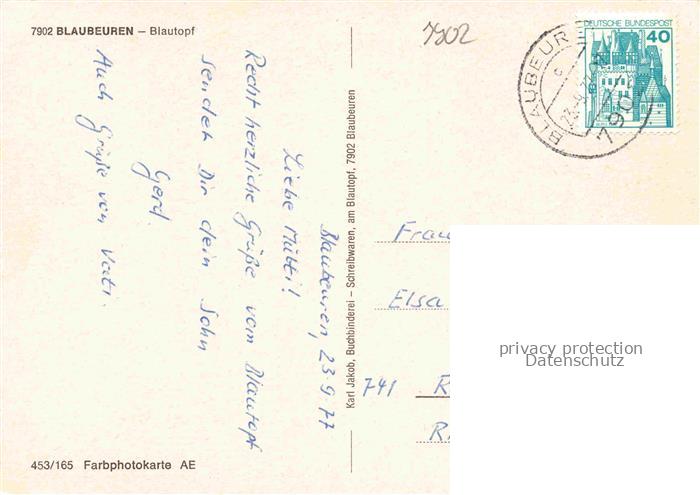 7902 BLAUBEUREN – Blautopf
7902
DEUTSCHE BUNDESPOST
40
BLAUBEUR
c
790
Blaubeuren, 23.9.77
Liebe Mutti!
Recht herzliche Grüße vom Blautopf
sendet Dir dein Sohn
Gerd.
Auch Grüße von Vati.
Karl Jakob, Buchbinderei – Schreibwaren, am Blautopf, 7902 Blaubeuren
Frau
Elsa
741 R
R.
privacy protection
Datenschutz
453/165 Farbphotokarte AE